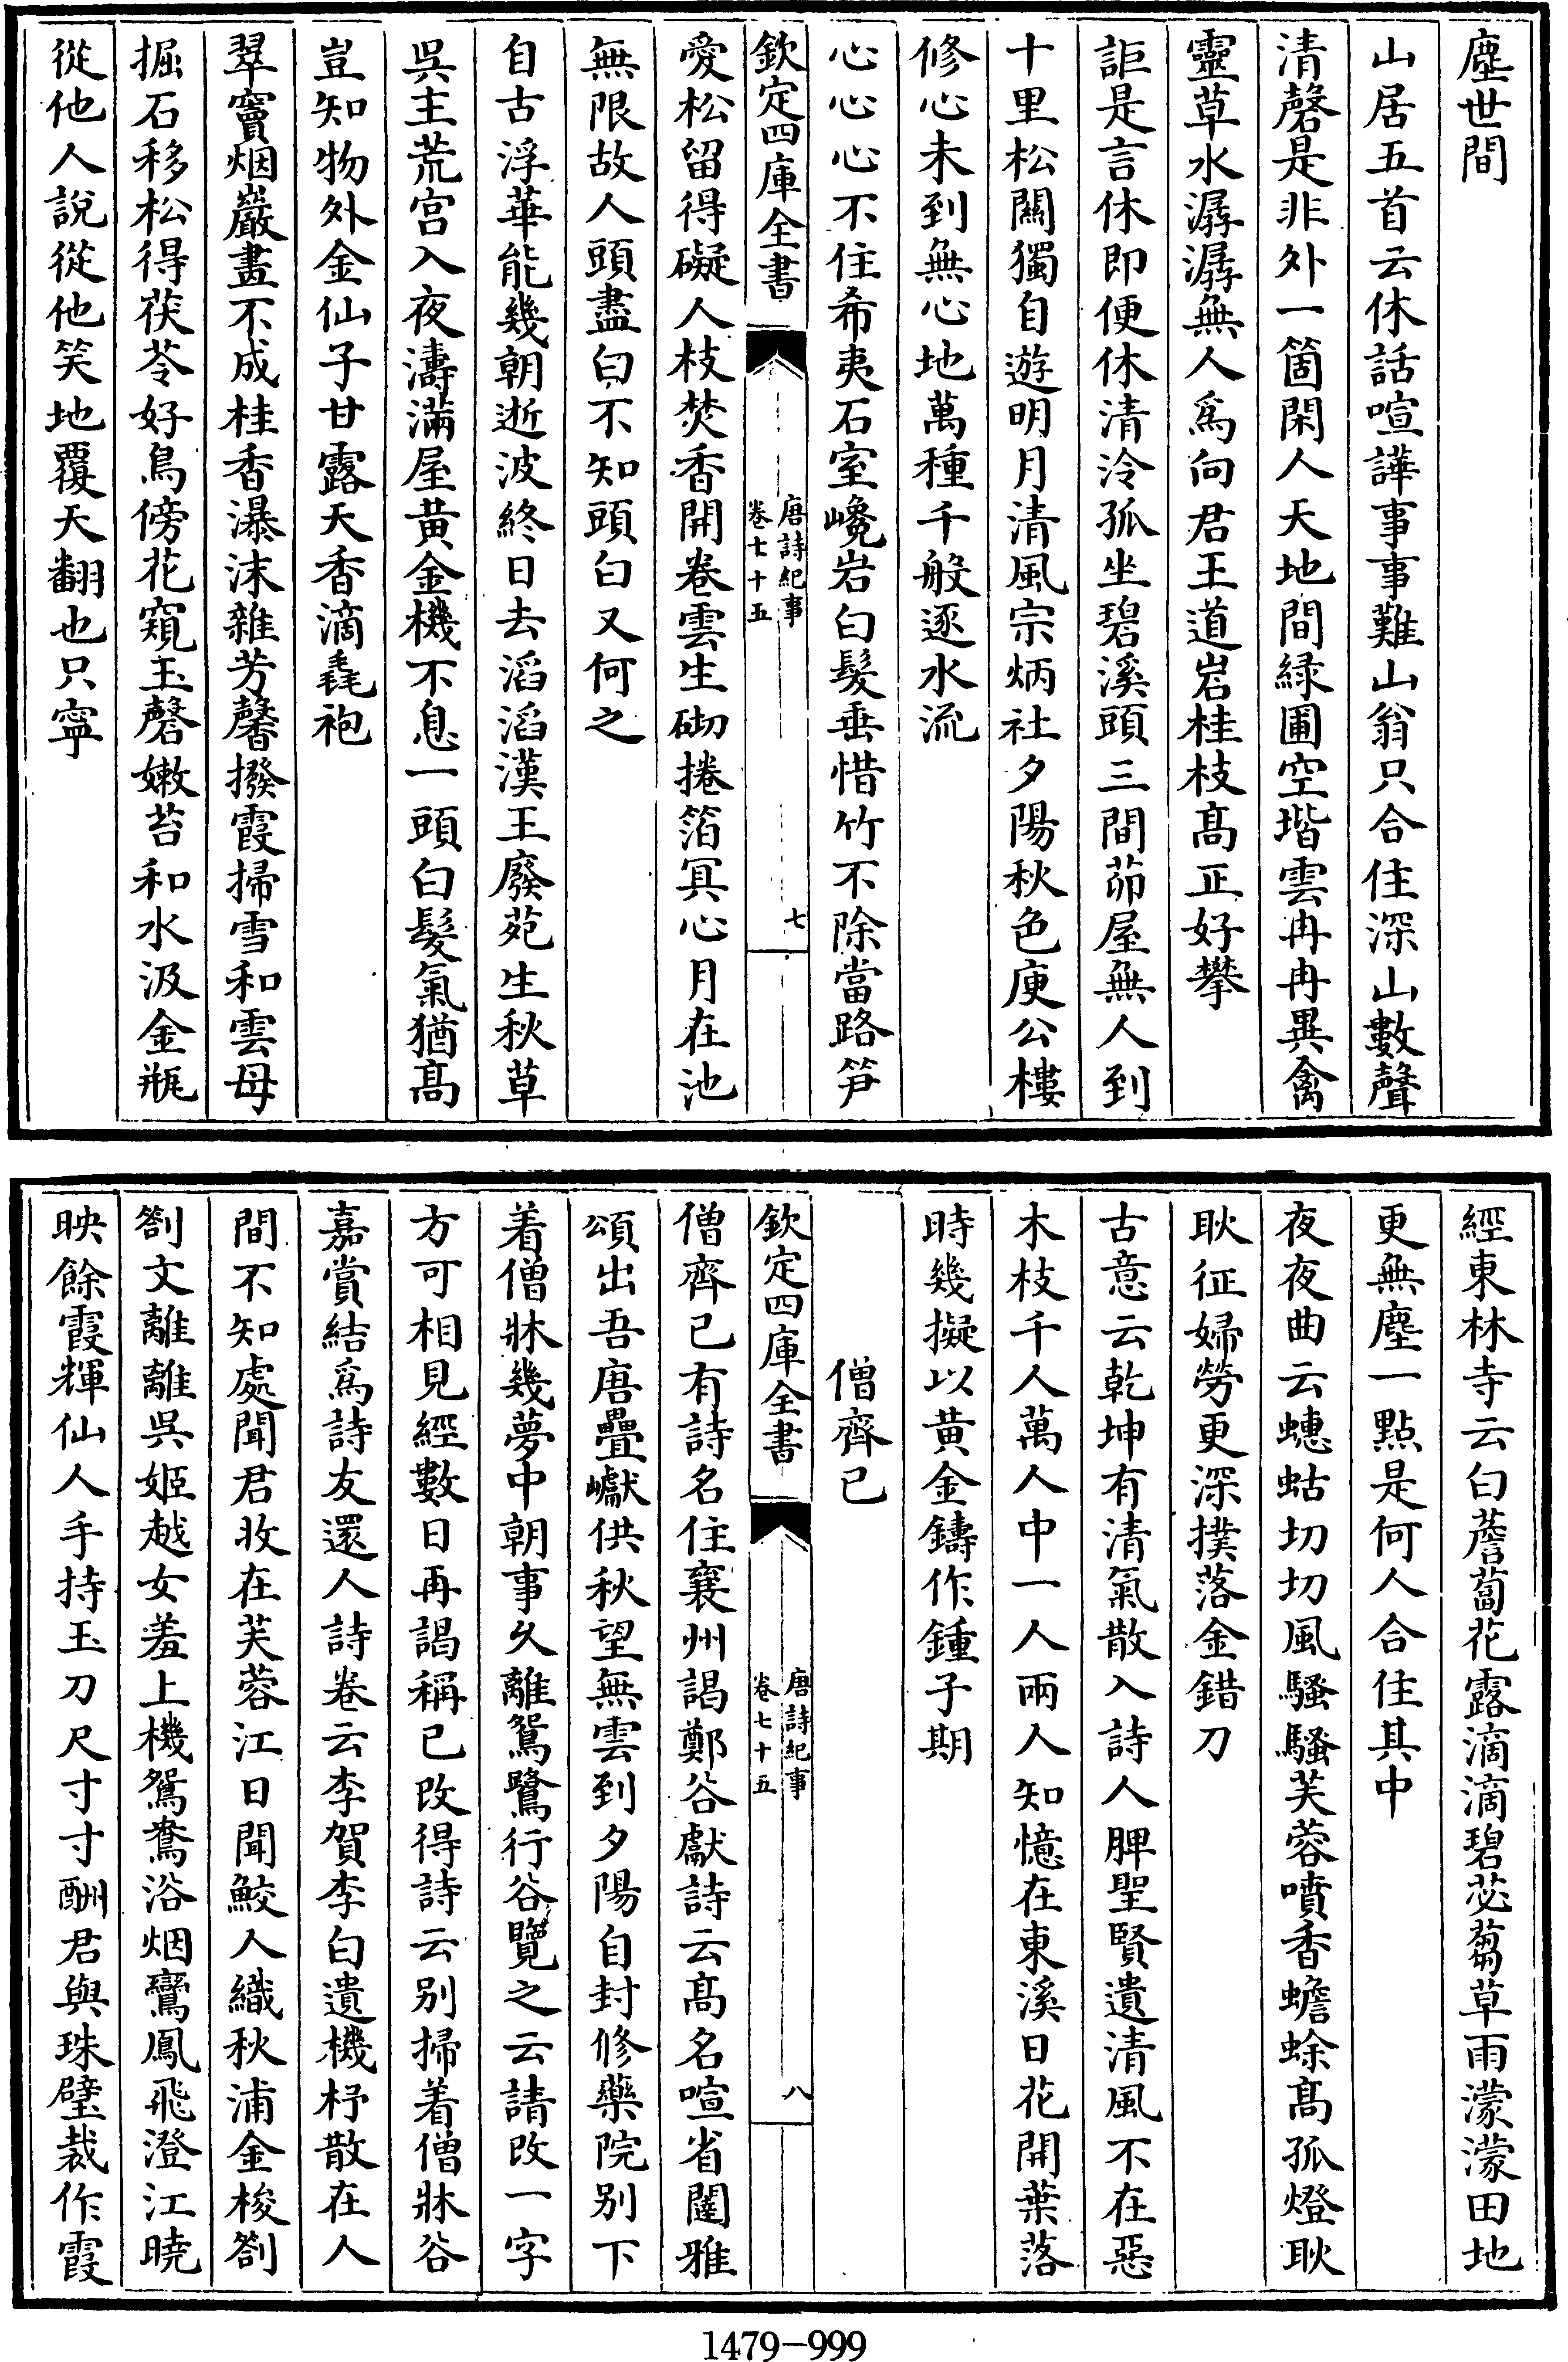 塵世間
山居五首云休話喧譁事事難山翁只合住深山數聲
清磬是非外一箇閑人天地間緑圃空堦雲冉冉異禽
靈草水潺潺無人爲向君王道岩桂枝髙正好攀
詎是言休即便休清泠孤坐碧溪頭三間茆屋無人到
十里松闗獨自遊明月清風宗炳社夕陽秋色庾公樓
修心未到無心地萬種千般逐水流
心心心不住希夷石室巉岩白髮垂惜竹不除當路笋
欽定四庫全書
唐詩紀事
卷七十五
七
愛松留得礙人枝焚香開卷雲生砌捲箔冥心月在池
無限故人頭盡白不知頭白又何之
自古浮華能幾朝逝波終日去滔滔漢王廢苑生秋草
吳主荒宫入夜濤滿屋黄金機不息一頭白髮氣猶髙
豈知物外金仙子甘露天香滴毳袍
翠竇烟巖畫不成桂香瀑沫雜芳馨撥霞掃雪和雲母
掘石移松得茯苓好鳥傍花窺玉磬嫩苔和水汲金瓶
從他人說從他笑地覆天翻也只寧
經東林寺云白薝蔔花露滴滴碧苾蒭草雨濛濛田地
更無塵一點是何人合住其中
夜夜曲云蟪蛄切切風騷騷芙蓉噴香蟾蜍髙孤燈耿
耿征婦勞更深撲落金錯刀
古意云乾坤有清氣散入詩人脾聖賢遺清風不在惡
木枝千人萬人中一人兩人知憶在東溪日花開葉落
時幾擬以黄金鑄作鍾子期
僧齊已
欽定四庫全書
唐詩紀事
卷七十五
八
僧齊已有詩名住襄州謁鄭谷獻詩云髙名喧省闥雅
頌出吾唐疊巘供秋望無雲到夕陽自封修藥院别下
着僧牀幾夢中朝事久離鴛鷺行谷覽之云請改一字
方可相見經數日再謁稱已改得詩云别掃着僧牀谷
嘉賞結爲詩友還人詩卷云李賀李白遺機杼散在人
間不知處聞君收在芙蓉江日聞鮫人織秋浦金梭劄
劄文離離吳姬越女羞上機鴛鴦浴烟鸞鳳飛澄江曉
映餘霞輝仙人手持玉刀尺寸寸酬君與珠璧裁作霞
1479-999